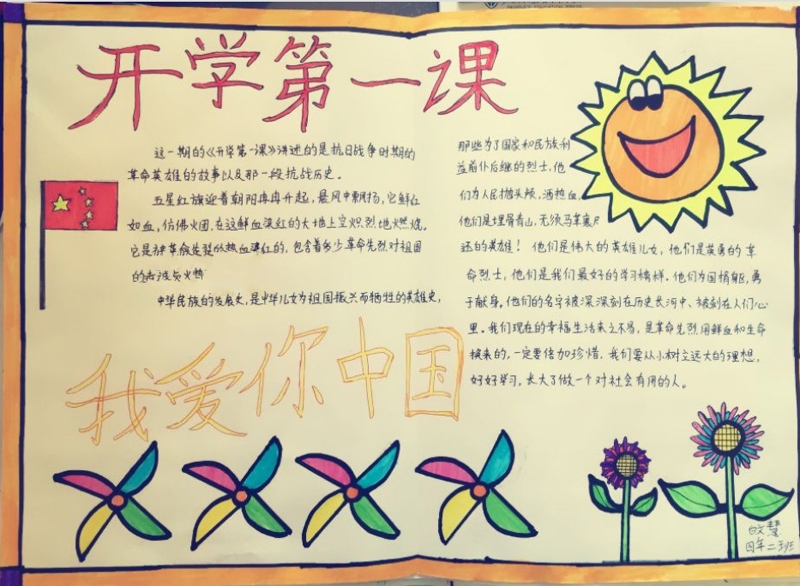 开学第一课
这一期的《开学第一课》讲述的是抗日战争时期的
革命英雄的故事以及那一段抗战历史。
五星红旗迎着朝阳冉冉升起，最风中飘扬，它鲜红
如血，仿佛火团，在这鲜血深红的大地上空炽烈地燃烧。
它是革命先烈的热血染红的，包含着多少革命先烈对祖国
的
中华民族的发展史，是中华儿女为祖国振兴而牺牲的英雄史，
那些为了国家和民族利
益前仆后继的烈士，他
们为人民抛头颅，洒热血，
他们是埋骨青山，无须马革裹尸
还的英雄！他们是伟大的英雄儿女，他们是英勇的革
命烈士，他们是我们最好的学习榜样。他们为国捐躯，勇
于献身，他们的名字被深深刻在历史长河中、被刻在人们心
里。我们现在的幸福生活来之不易，是革命先烈用鲜血和生命
换来的，一定要倍加珍惜，我们要从小树立远大的理想，
好好学习，长大了做一个对社会有用的人。
我爱你中国
慧
四年二班